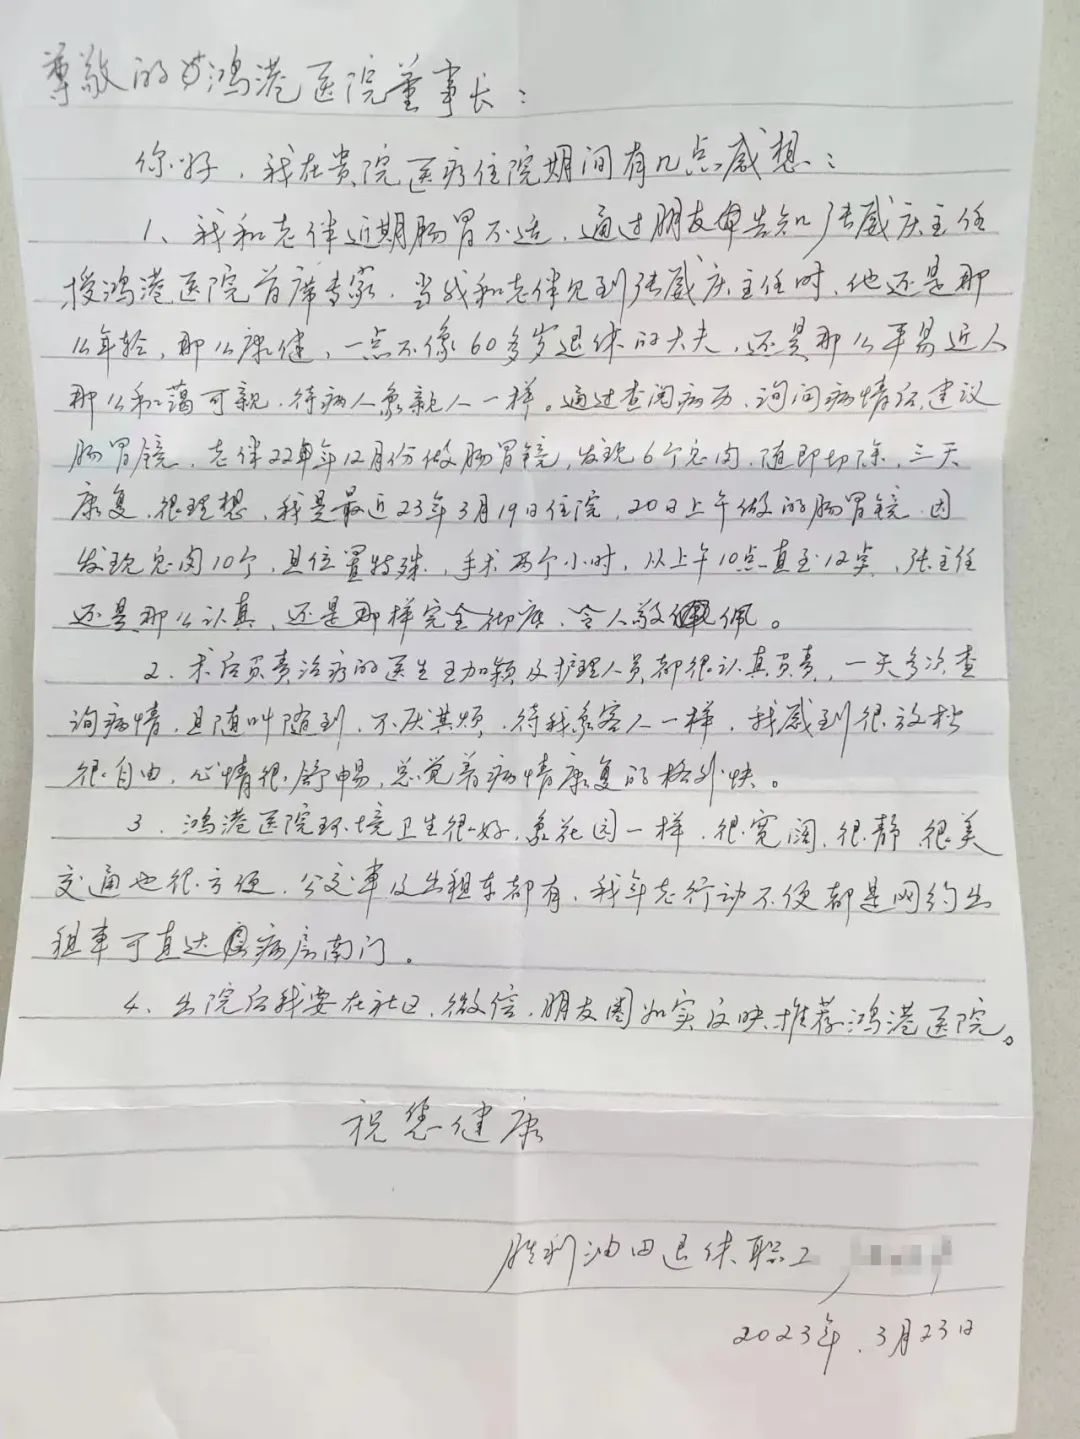 尊敬的鸿港医院董事长：
你好，我在贵院医疗住院期间有几点感想：
1、我和老伴近期肠胃不适，通过朋友告知张威庆主任
授鸿港医院首席专家，当我和老伴见到张威庆主任时，他还是那
么年轻，那么康健，一点不像60多岁退休的大夫，还是那么平易近人
那么和蔼可亲，待病人象亲人一样。通过查阅病历、询问病情后建议
肠胃镜，老伴22年12月份做肠胃镜，发现6个息肉，随即切除，三天
康复，很理想，我是最近23年3月19日住院，20日上午做的肠胃镜，因
发现息肉10个，且位置特殊，手术两个小时，从上午10点一直至12点，张主任
还是那么认真，还是那样完全彻底，令人敬佩。
2、术后负责治疗的医生王加颖及护理人员都很认真负责，一天多次查
询病情，且随叫随到，不厌其烦，待我象客人一样，我感到很放松
很自由，心情很舒畅，总觉着病情康复的格外快。
3、鸿港医院环境卫生很好，象花园一样，很宽阔，很静，很美
交通也很方便，公交车及出租车都有，我年老行动不便都是网约出
租车可直达病房南门。
4、出院后我要在社区，微信，朋友圈如实反映推荐鸿港医院。
祝您健康
胜利油田退休职工
2023年.3月23日